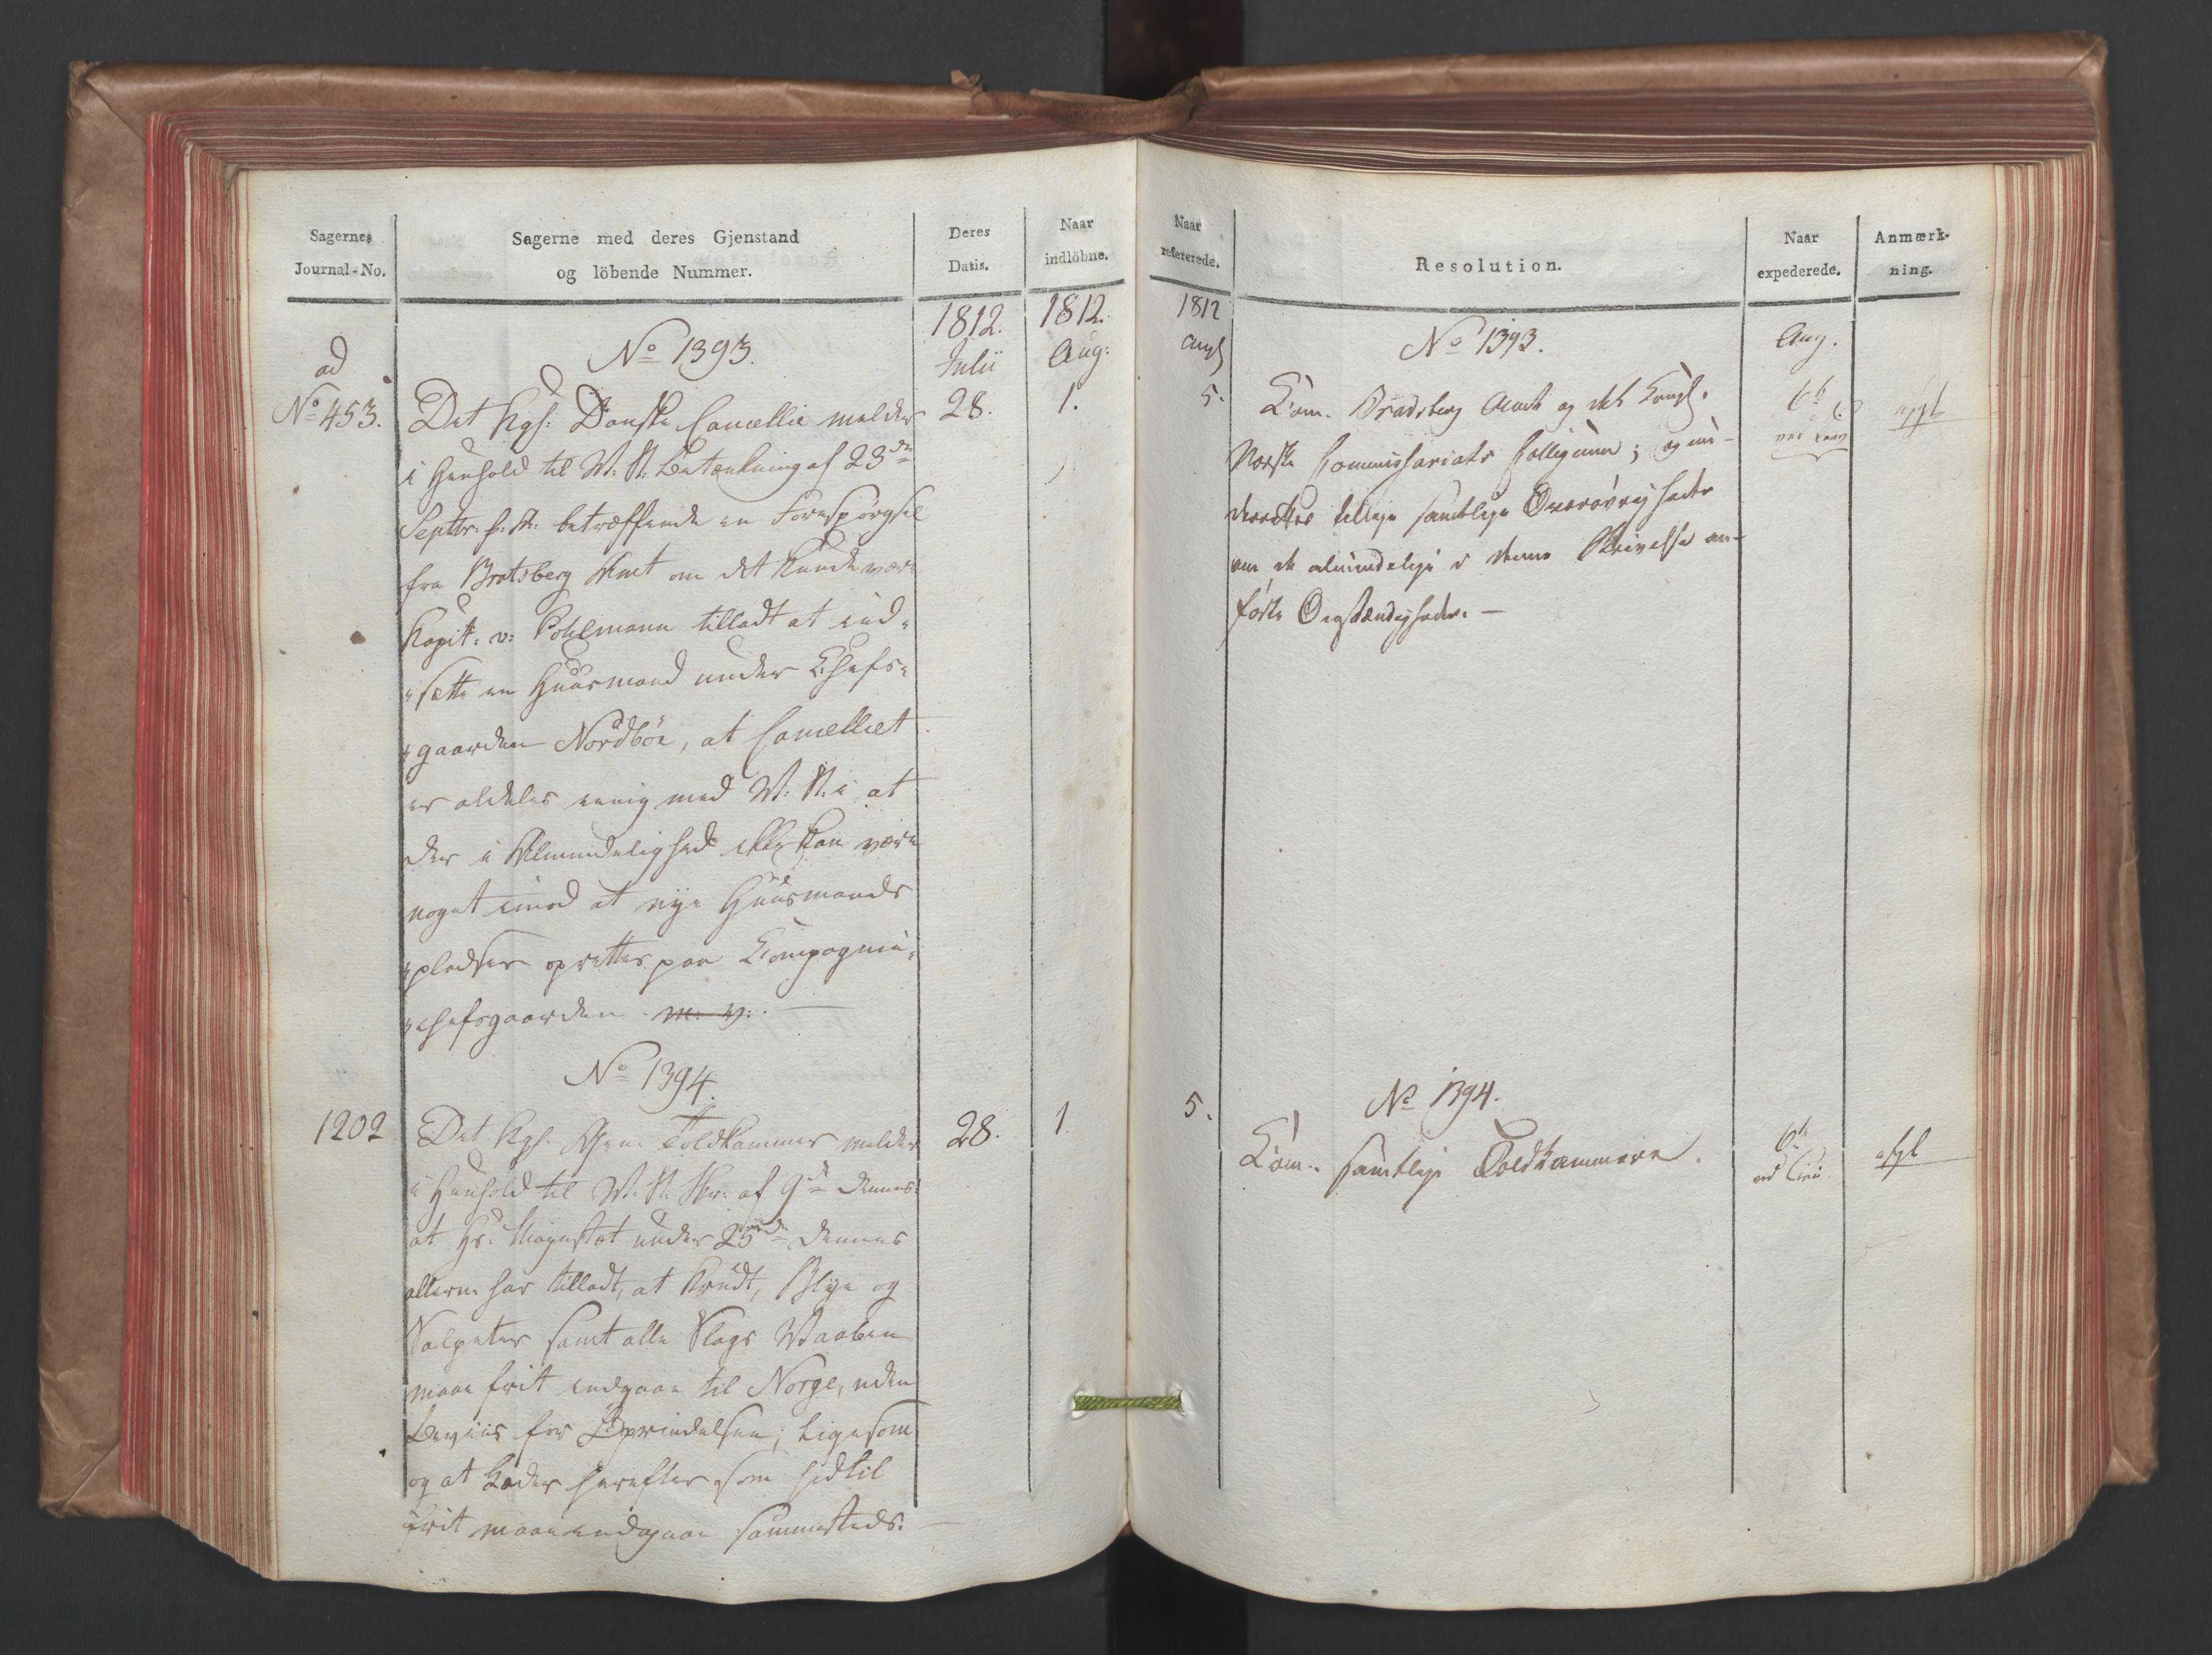 Sagernes
Journal-No.
Sagerne med deres Gjenstand
og löbende Nummer.
Deres
Datis.
Naar
indlöbne.
1812.
Julii
1812.
Aug:
ad
No 453.
No 1393.
28.
1.
Det Kgl: Danske Cancellie melder
i Henhold til V: R: Betænkning af 23de
Septbr: f: A: betræffende en Forespørgsel
fra Bratsberg Amt om det kunde være
Kapit: v: Pohlmann tilladt at ind-
sætte en Huusmand under Chefs-
gaarden Nordböe, at Cancelliet
er aldeles eenig med V: R: i at
der i Almindelighed ikke kan være
noget imod at nye Huusmands
pladser oprettes paa Compagnie-
chefsgaarden m: v:
No 1394.
1202
28.
1.
Det Kgl. Gen. Toldkammer melder
i Henhold til V: R: Skr: af 9de dennes
at Hs: Majestæt under 25de dennes
allern: har tilladt, at Krudt, Blye og
Salpeter samt alle Slags Vaaben
maae frit indgaae til Norge, uden
Beviis for Oprindelsen; ligesom
og at Læder herefter som hidtil
frit maae indgaae sammesteds.
Naar
refererede.
Resolution.
Naar
expederede.
Anmærk-
ning.
1812
Aug
No 1393.
Aug.
5.
Com. Bradsberg Amt og det Kongl.
Norske Commissariats Collegium; og un-
derrettes tillige samtlige Overøvrigheder
om de almindelige i denne Skrivelse an-
førte Omstændigheder.
6te
afgl
5.
No 1394.
Com. samtlige Toldkammere.
6te
afgl